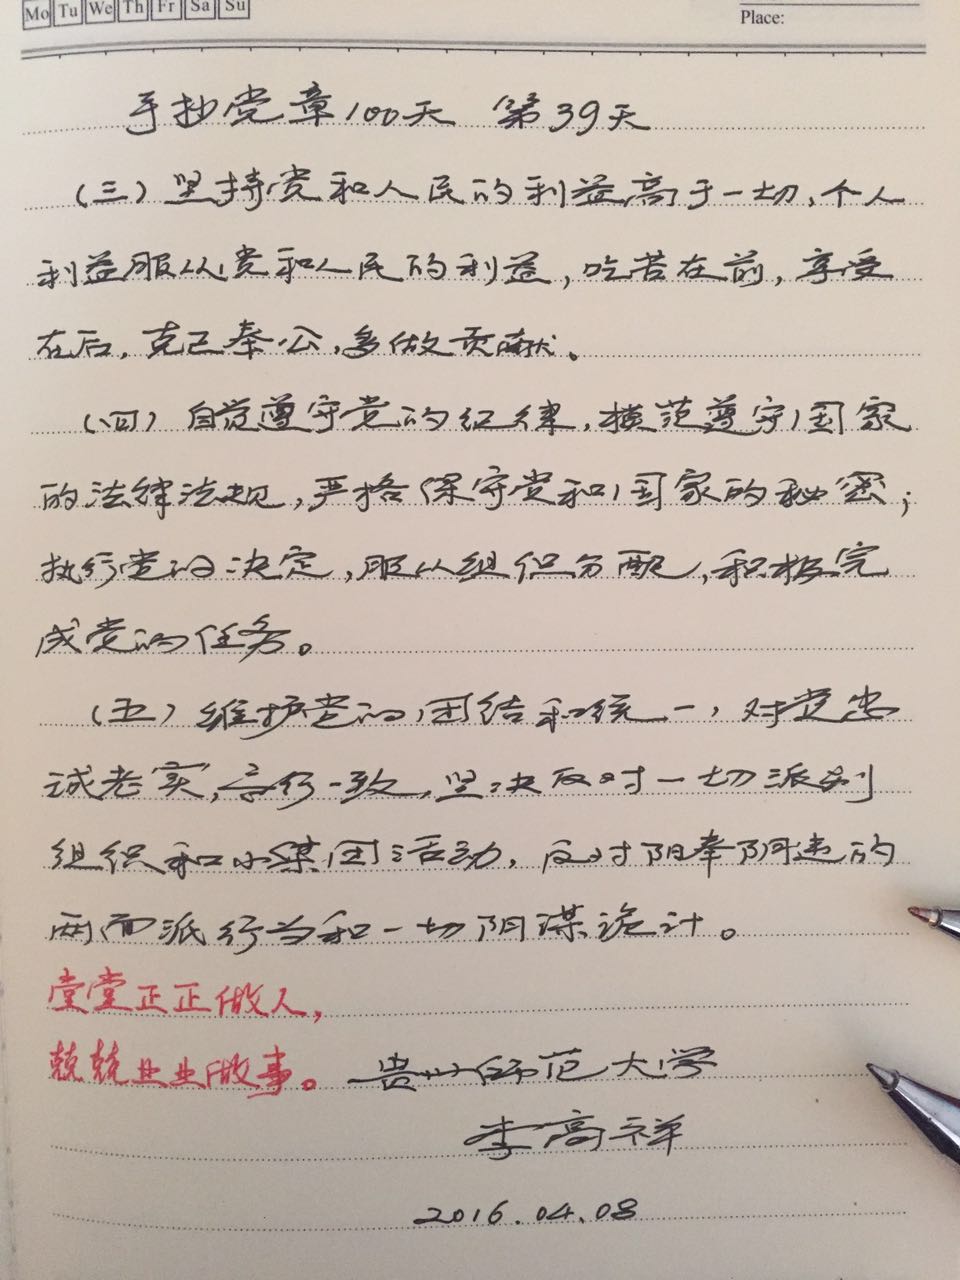 Mo Tu We Th Fr Sa Su
Place:
手抄党章100天 第39天
(三)坚持党和人民的利益高于一切,个人
利益服从党和人民的利益,吃苦在前,享受
在后,克己奉公,多做贡献。
(四)自觉遵守党的纪律,模范遵守国家
的法律法规,严格保守党和国家的秘密;
执行党的决定,服从组织分配,积极完
成党的任务。
(五)维护党的团结和统一,对党忠
诚老实,言行一致,坚决反对一切派别
组织和小集团活动,反对阳奉阴违的
两面派行为和一切阴谋诡计。
堂堂正正做人,
兢兢业业做事。 贵州师范大学
李高祥
2016.04.08